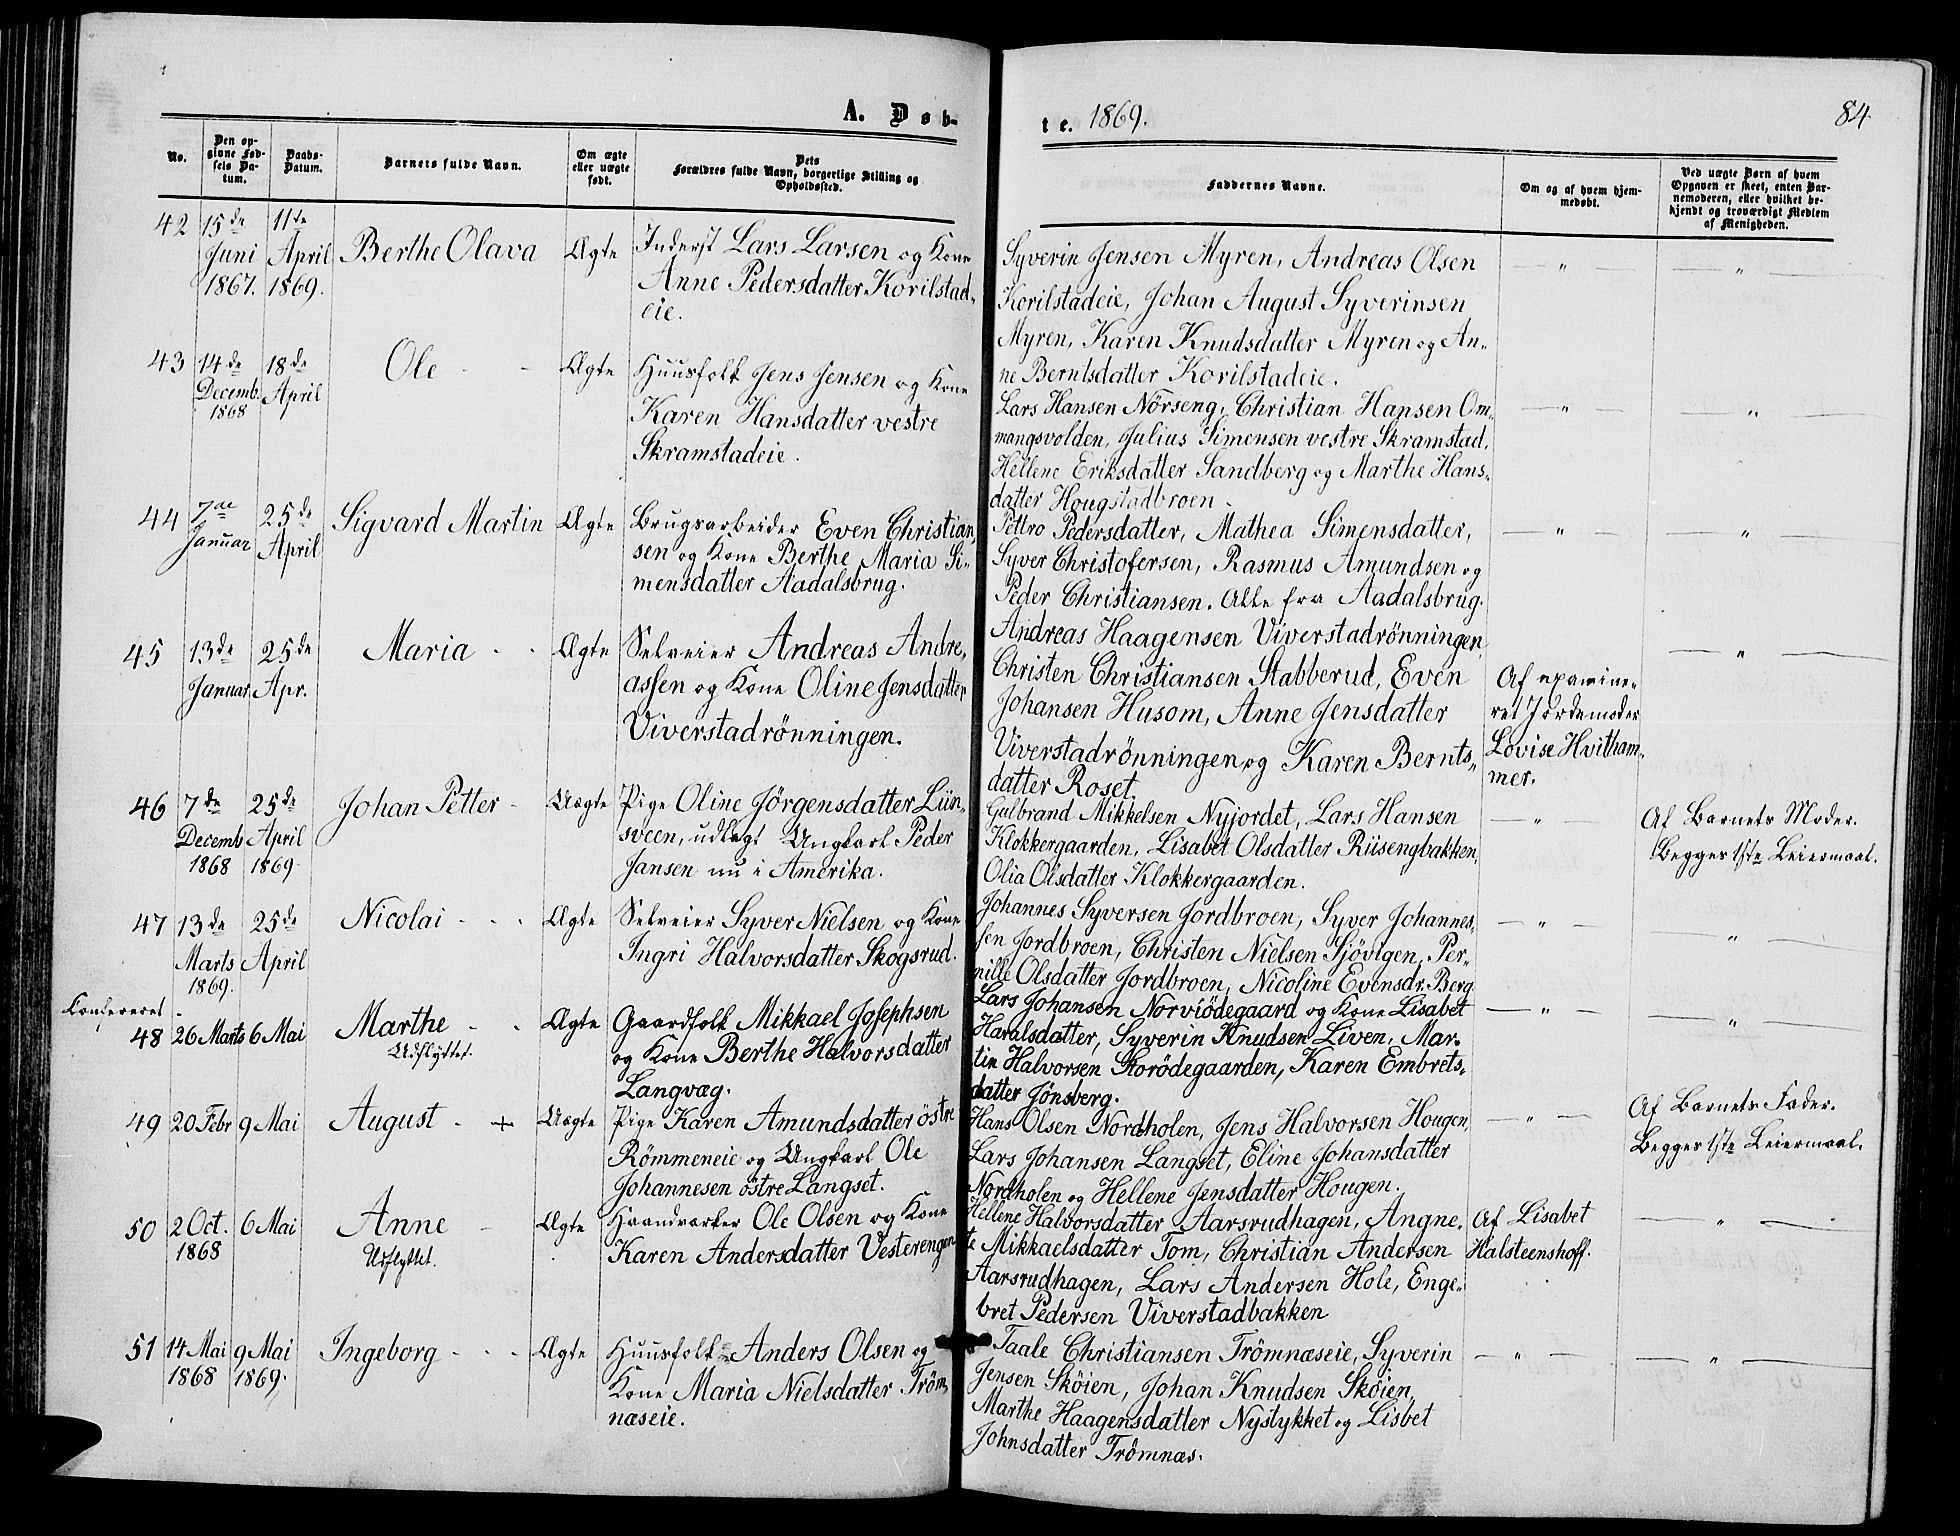 A. Døb-
No.
Den op-
givne Fød-
sels Da-
tum.
Daabs-
Datum.
Barnets fulde Navn.
Om ægte
eller uægte
født.
Dets
Forældres fulde Navn, borgerlige Stilling og
Opholdssted.
42
15de
Juni
1867.
11te
April
1869.
Berthe Olava
Ægte
Inderst Lars Larsen og Kone
Anne Pedersdatter Korilstad-
eie.
43
14de
Decemb.
1868
18de
April
Ole
Ægte
Huusfolk Jens Jensen og Kone
Karen Hansdatter vestre
Skramstadeie.
44
7de
Januar
25de
April
Sigvard Martin
Ægte
Brugsarbeider Even Christian-
sen og Kone Berthe Maria Si-
mensdatter Aadalsbrug.
45
13de
Januar
25de
Apr.
Maria
Ægte
Selveier Andreas Andre-
assen og Kone Oline Jensdatter
Viverstadrönningen.
46
7de
Decemb
1868
25de
April
1869
Johan Petter
Uægte
Pige Oline Jörgensdatter Lün-
sveen, udlagt Ungkarl Peder
Jansen nu i Amerika.
47
13de
Marts
1869.
25de
April
Nicolai
Ægte
Selveier Syver Nielsen og Kone
Ingri Halvorsdatter Skogsrud.
Confereret
48
26 Marts
6 Mai
Marthe
Udflyttet.
Ægte
Gaardfolk Mikkael Josephsen
og Kone Berthe Halvorsdatter
Langvæg.
49
20 Febr
9 Mai
August - +
Uægte
Pige Karen Amundsdatter östre
Römmeneie og Ungkarl Ole
Johannesen östre Langset.
50
2 Oct.
1868
6 Mai
Anne
Udflyttet.
Ægte
Haandværker Ole Olsen og Kone
Karen Andersdatter Vesterengen
51
14 Mai
1868
9 Mai
1869.
Ingeborg
Ægte
Huusfolk Anders Olsen og
Kone Maria Nielsdatter Tröm-
næseie.
te. 1869.
84
Faddernes Navne.
Om og af hvem hjem-
medøbt.
Ved uægte Børn af hvem
Opgaven er skeet, enten Bar-
nemoderen, eller hvilket be-
kjendt og troværdigt Medlem
af Menigheden.
Syverin Jensen Myren, Andreas Olsen
Korilstadeie, Johan August Syverinsen
Myren, Karen Knudsdatter Myren og An-
ne Berntsdatter Korilstadeie.
Lars Hansen Nörseng, Christian Hansen Om-
mangsvolden, Julius Simensen vestre Skramstad.
Hellene Eriksdatter Sandberg og Marthe Hans-
datter Hougstadbroen.
Pettro Pedersdatter, Mathea Simensdatter,
Syver Christofersen, Rasmus Amundsen og
Peder Christiansen. Alle fra Aadalsbrug.
Andreas Haagensen Viverstadrönningen,
Christen Christiansen Stabberud, Even
Johansen Husom, Anne Jensdatter
Viverstadrönningen og Karen Bernts-
datter Roset.
Af examine-
ret Jordemoder
Lovise Hvitham-
mer.
Gulbrand Mikkelsen Nyjordet, Lars Hansen
Klokkergaarden, Lisabet Olsdatter Rüsengbakken,
Olia Olsdatter Klokkergaarden.
Af Barnets Moder.
Begges 1ste Leiermaal.
Johannes Syversen Jordbroen, Syver Johannes-
sen Jordbroen, Christen Nielsen Sjövigen, Per-
nille Olsdatter Jordbroen, Nicoline Evensdr. Berg
Lars Johansen Norviödegaard og Kone Lisabet
Haralsdatter, Syverin Knudsen Liven, Mar-
tin Halvorsen Storödegaarden, Karen Embrets-
datter Jönsberg.
Hans Olsen Nordholen, Jens Halvorsen Hougen,
Lars Johansen Langset, Eline Johansdatter
Nordholen og Hellene Jensdatter Hougen.
Af Barnets Fader.
Begges 1ste Leiermaal.
Hellene Halvorsdatter Aarsrudhagen, Angne-
te Mikkaelsdatter Tom, Christian Andersen
Aarsrudhagen, Lars Andersen Hole, Enge-
bret Pedersen Viverstadbakken
Af Lisabet
Halsteenshoff.
Taale Christiansen Trömnæseie, Syverin
Jensen Sköien, Johan Knudsen Sköien,
Marthe Haagensdatter Nystykket og Lisbet
Johnsdatter Trömnæs.